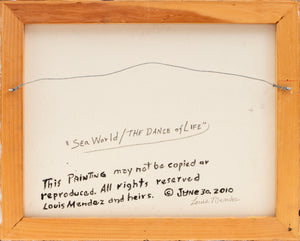 "Sea World/THE DANCE of LIFE"
This PAINTING may not be copied or
reproduced. All rights reserved
Louis Mendez and heirs. © JUNE 30, 2010
Louis Mendez